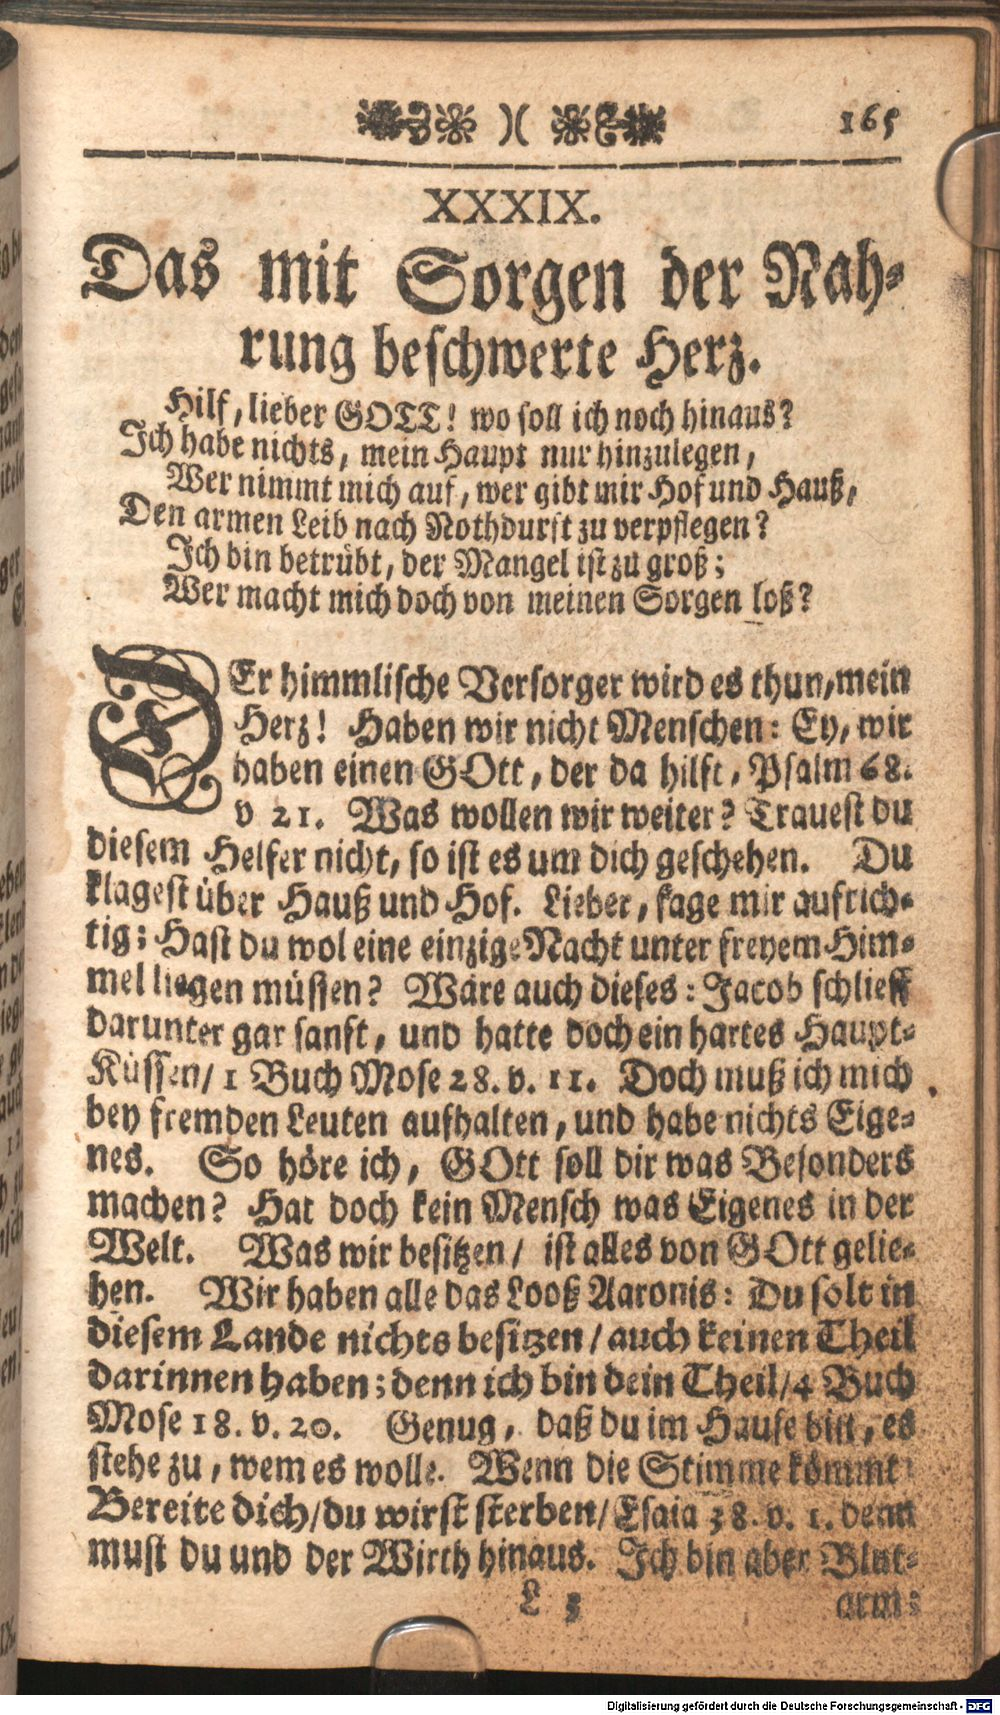 )( 165
XXXIX.
Das mit Sorgen der Nah-
rung beschwerte Herz.
Hilf, lieber GOTT! wo soll ich noch hinaus?
Ich habe nichts, mein Haupt nur hinzulegen,
Wer nimmt mich auf, wer gibt mir Hof und Hauß,
Den armen Leib nach Nothdurft zu verpflegen?
Ich bin betrübt, der Mangel ist zu groß;
Wer macht mich doch von meinen Sorgen loß?
DEr himmlische Versorger wird es thun, mein
Herz! Haben wir nicht Menschen: Ey, wir
haben einen GOtt, der da hilft, Psalm 68.
v 21. Was wollen wir weiter? Trauest du
diesem Helfer nicht, so ist es um dich geschehen. Du
klagest über Hauß und Hof. Lieber, sage mir aufrich-
tig: Hast du wol eine einzige Nacht unter freyem Him-
mel liegen müssen? Wäre auch dieses: Jacob schlieff
darunter gar sanft, und hatte doch ein hartes Haupt-
Küssen/ 1 Buch Mose 28. v. 11. Doch muß ich mich
bey fremden Leuten aufhalten, und habe nichts Eige-
nes. So höre ich, GOtt soll dir was Besonders
machen? Hat doch kein Mensch was Eigenes in der
Welt. Was wir besitzen/ ist alles von GOtt gelie-
hen. Wir haben alle das Looß Aaronis: Du solt in
diesem Lande nichts besitzen/ auch keinen Theil
darinnen haben; denn ich bin dein Theil/ 4 Buch
Mose 18. v. 20. Genug, daß du im Hause bist, es
stehe zu, wem es wolle. Wenn die Stimme kömmt:
Bereite dich/ du wirst sterben/ Esaia 38. v. 1. denn
must du und der Wirth hinaus. Ich bin aber Blut-
L 3 arm:
Digitalisierung gefördert durch die Deutsche Forschungsgemeinschaft - DFG